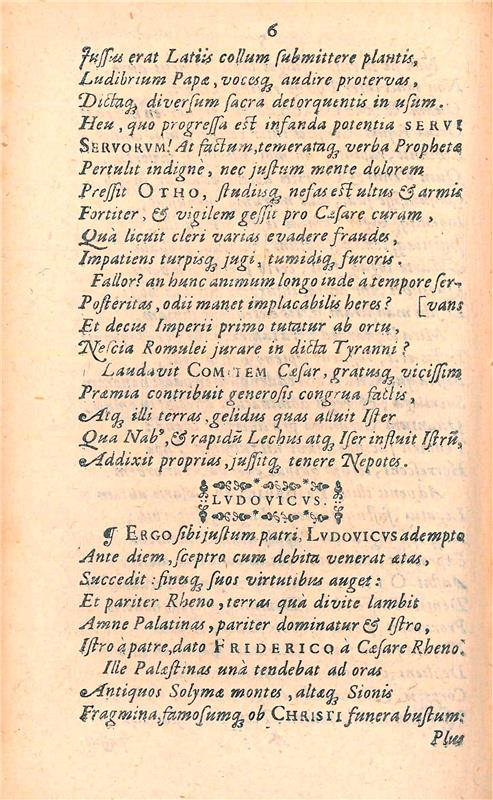 6
Juſſus erat Latiis collum ſubmittere plantis,
Ludibrium Papæ, vocesq́ audire protervas,
Dictaq́ diverſum ſacra detorquentis in uſum.
Heu, quo progreſſa eſt infanda potentia SERVI
SERVORVM! At factum, temerataq́ verba Prophetæ
Pertulit indigne, nec juſtum mente dolorem
Preſſit OTHO, ſtudiisq́ nefas eſt ultus & armis
Fortiter, & vigilem geſſit pro Cæſare curam,
Quà licuit cleri varias evadere fraudes,
Impatiens turpisq́ jugi, tumidiq́ furoris.
Fallor? an hunc animum longo inde à tempore ſer-
Poſteritas, odii manet implacabilis heres? [vans
Et decus Imperii primo tutatur ab ortu,
Neſcia Romulei jurare in dicta Tyranni?
Laudavit COMITEM Cæſar, gratusq́ viciſſim
Præmia contribuit generoſis congrua factis,
Atq́ illi terras gelidus quas alluit Iſter
Qua Nabꝰ, & rapidũ Lechus atq́ Iſer influit Iſtrũ,
Addixit proprias, juſſitq́ tenere Nepotes.
LVDOVICVS.
¶ ERGO ſibi juſtum patri, LVDOVICVS adempto
Ante diem, ſceptro cum debita venerat ætas,
Succedit: finesq́ ſuos virtutibus auget:
Et pariter Rheno, terras quà divite lambit
Amne Palatinas, pariter dominatur & Iſtro,
Iſtro à patre, dato FRIDERICO à Cæſare Rheno.
Ille Palæſtinas unà tendebat ad oras
Antiquos Solymæ montes, altæq́ Sionis
Fragmina, famoſumq́ ob CHRISTI funera buſtum:
Plus